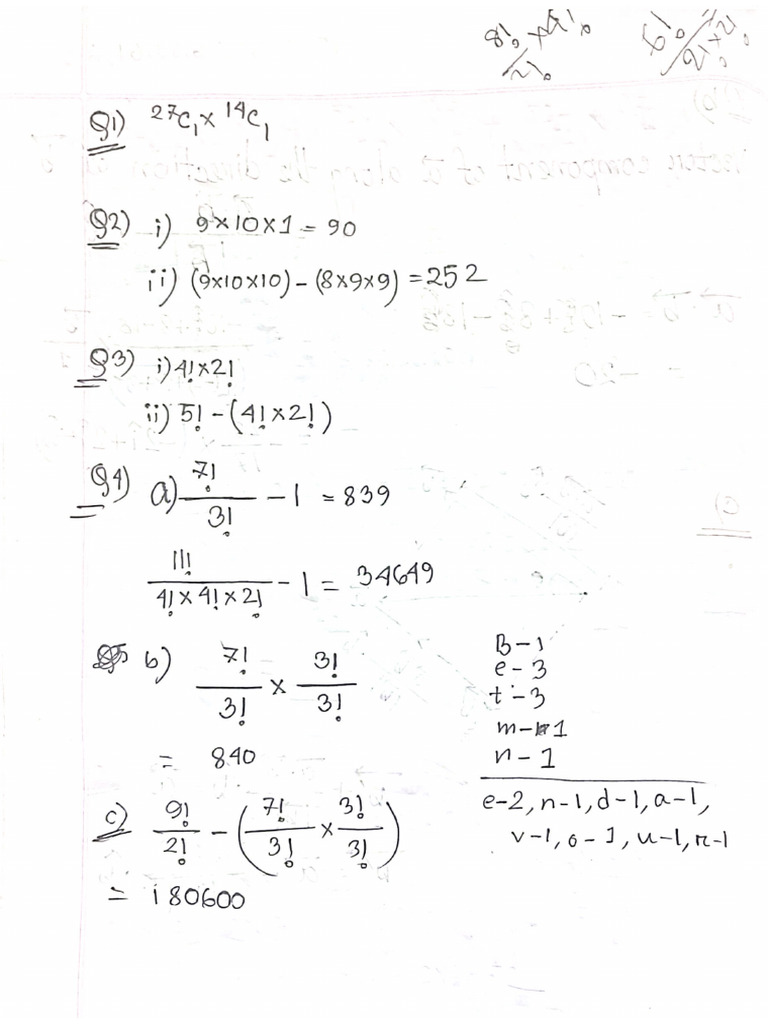 8! × 4!
2!
6!
2! × 2!
Q1) ²⁷C₁ × ¹⁴C₁
Q2) i) 9×10×1 = 90
ii) (9×10×10) - (8×9×9) = 252
Q3) i) 4! × 2!
ii) 5! - (4! × 2!)
Q4) a) 7!/3! - 1 = 839
11!/(4! × 4! × 2!) - 1 = 34649
b) 7!/3! × 3!/3!
= 840
B - 1
e - 3
t - 3
m - 1
n - 1
e-2, n-1, d-1, a-1,
v-1, o-1, u-1, r-1
c) 9!/2! - (7!/3! × 3!/3!)
= 180600